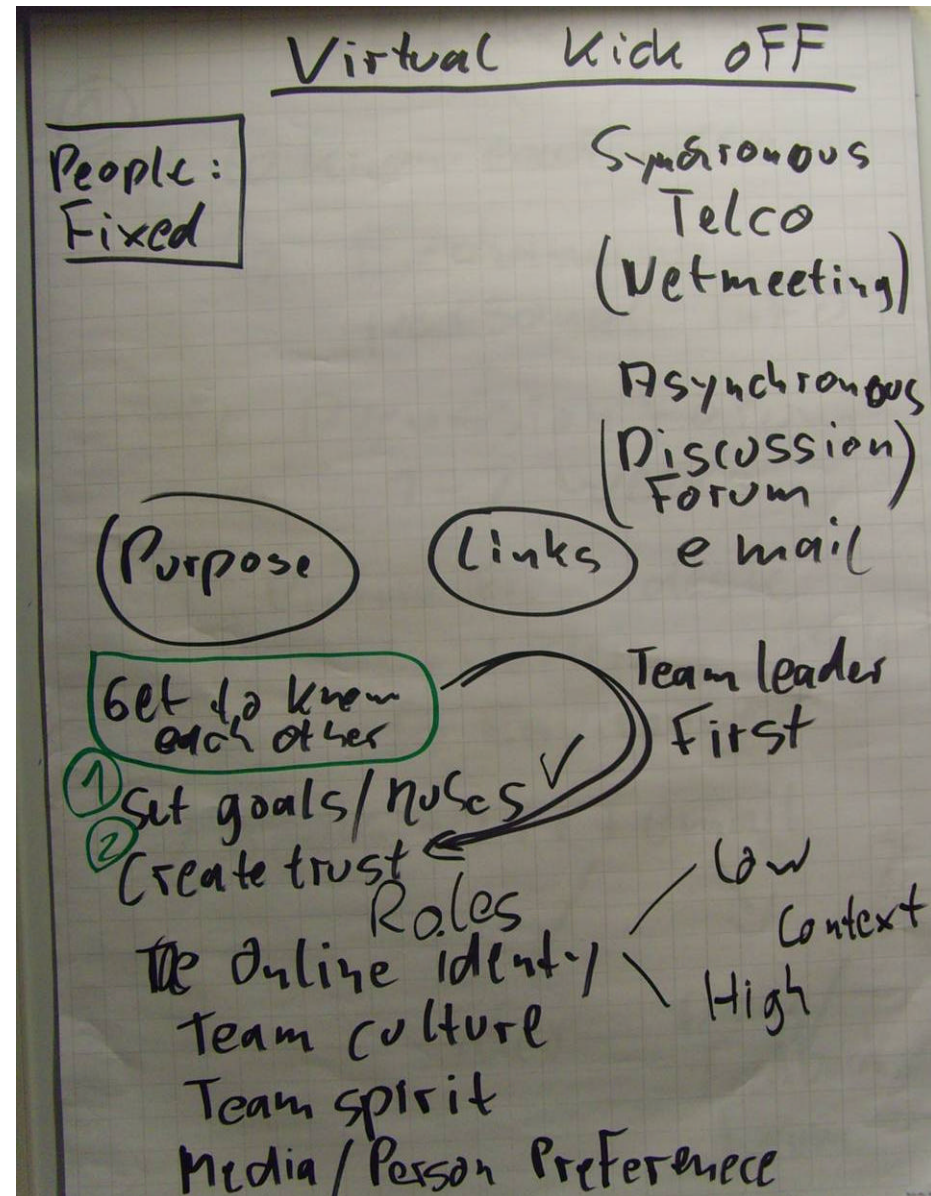 Virtual Kick off
People:
Fixed
Synchronous
Telco
(Netmeeting)
Asynchronous
(Discussion
Forum)
e mail
Purpose
Links
Get to know
each other
Team leader
First
1 Set goals/
2 Create trust
Roles
Online identity
Low
Context
High
Team culture
Team spirit
Media / Person Preferemece